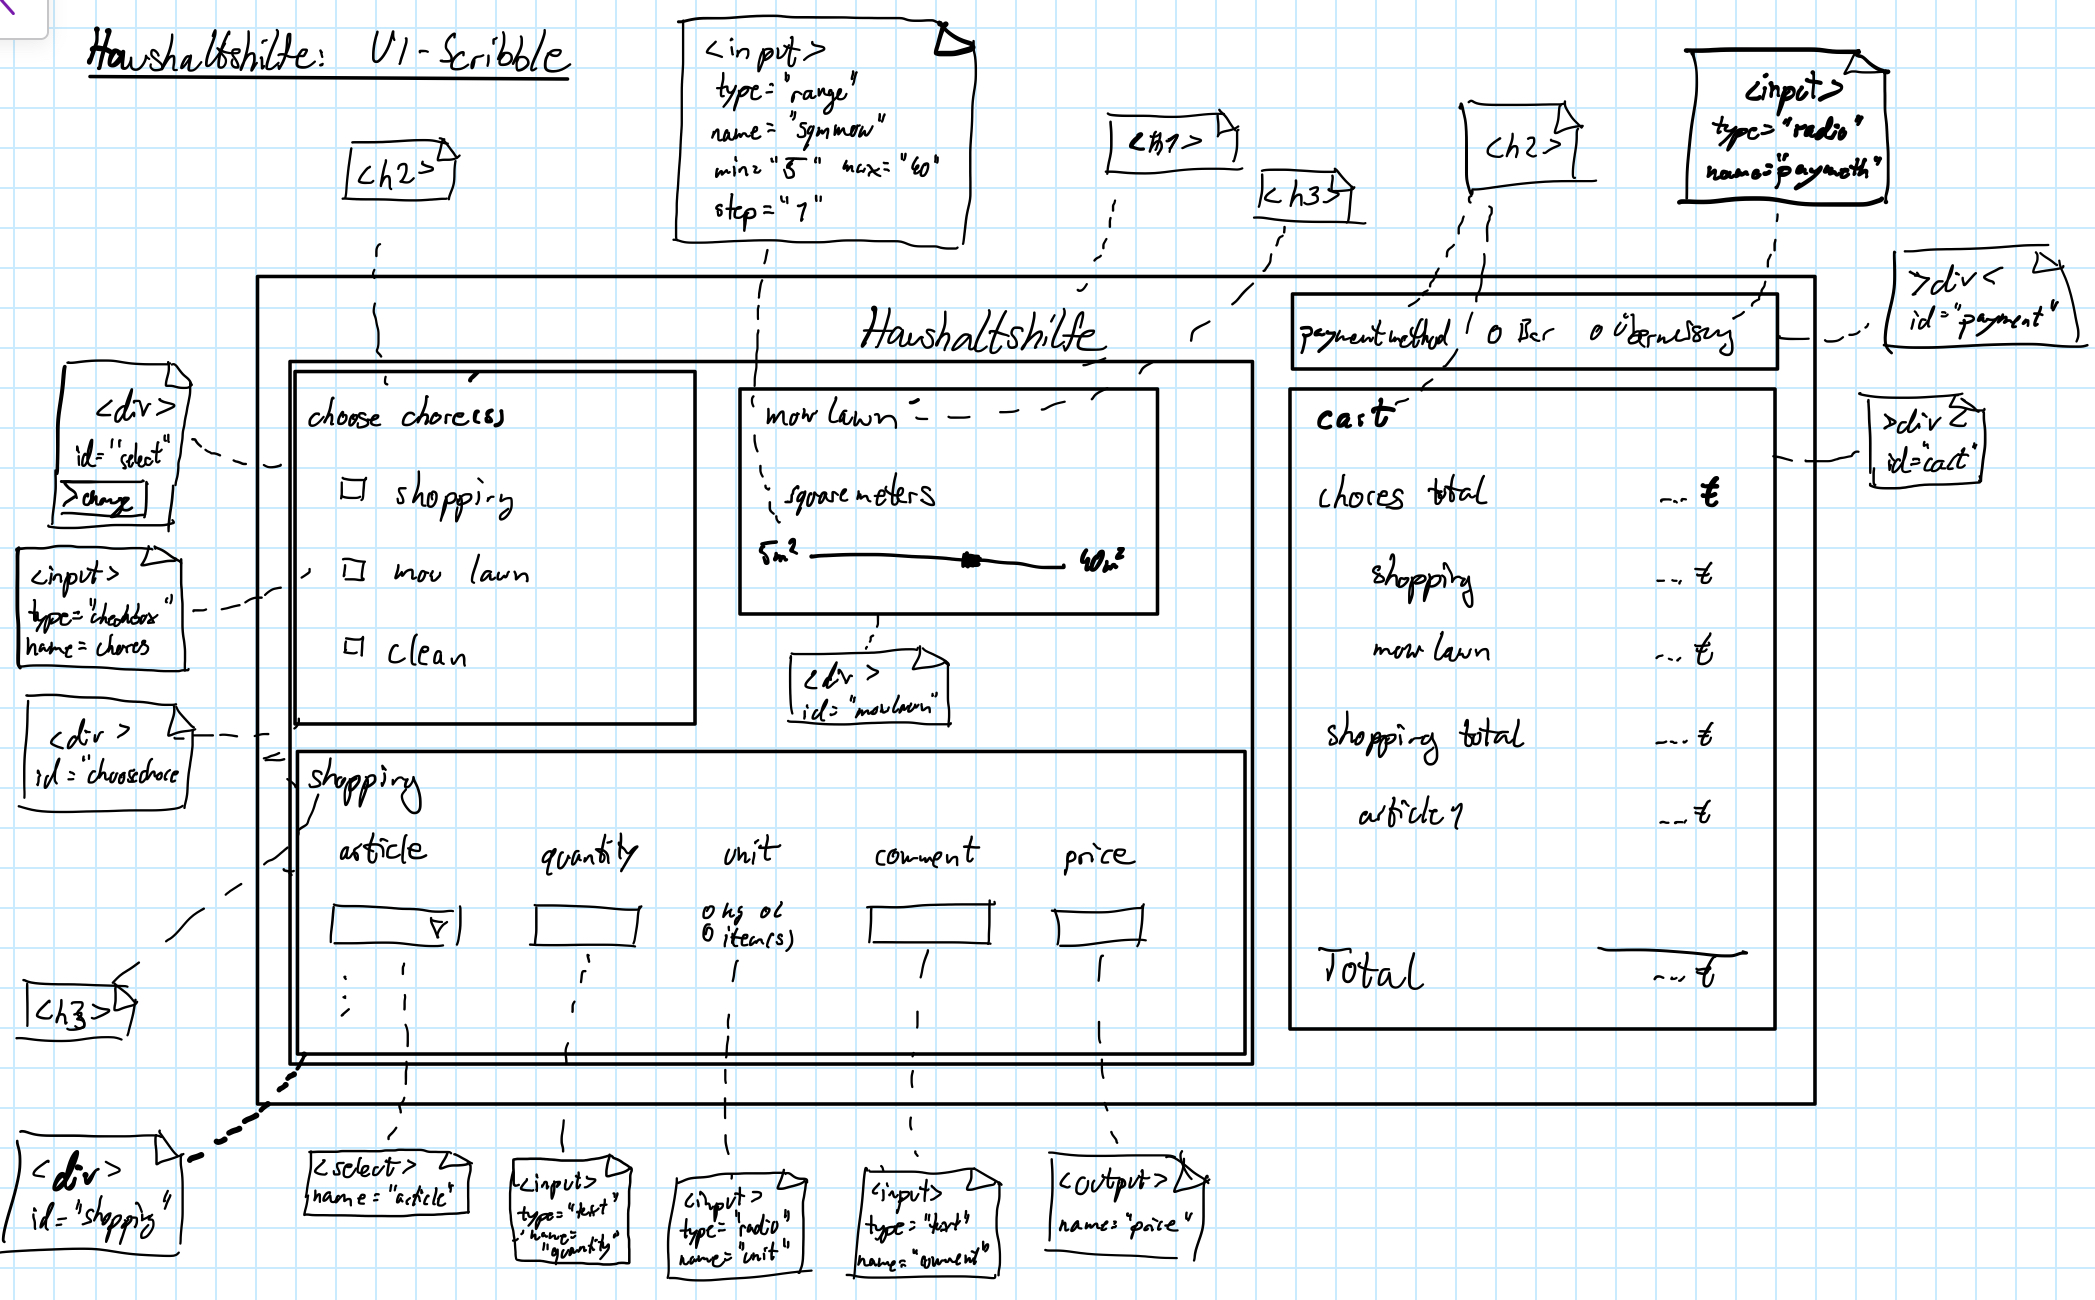 Haushaltshilfe: UI-Scribble
<h2>
<input>
type="range"
name="sqmmow"
min="5" max="40"
step="1"
<h1>
<h3>
<h2>
<input>
type="radio"
name="paymeth"
>div<
id="payment"
Haushaltshilfe
paymentmethod o Bar o
<div>
id="select"
>change
<input>
type="checkbox"
name=chores
<div>
id="choosechore
choose chore(s)
shopping
mow lawn
clean
mow lawn
squaremeters
5m² 40m²
<div>
id="mowlawn"
cart
chores total ...€
shopping ...€
mow lawn ...€
shopping total ...€
article1 ...€
Total ...€
>div<
id="cart"
shopping
article quantity unit comment price
o kg o l
o item(s)
<h3>
<div>
id="shopping"
<select>
name="article"
<input>
type="text"
name=
"quantity"
<input>
type="radio"
name="unit"
<input>
type="text"
name="comment"
<output>
name="price"